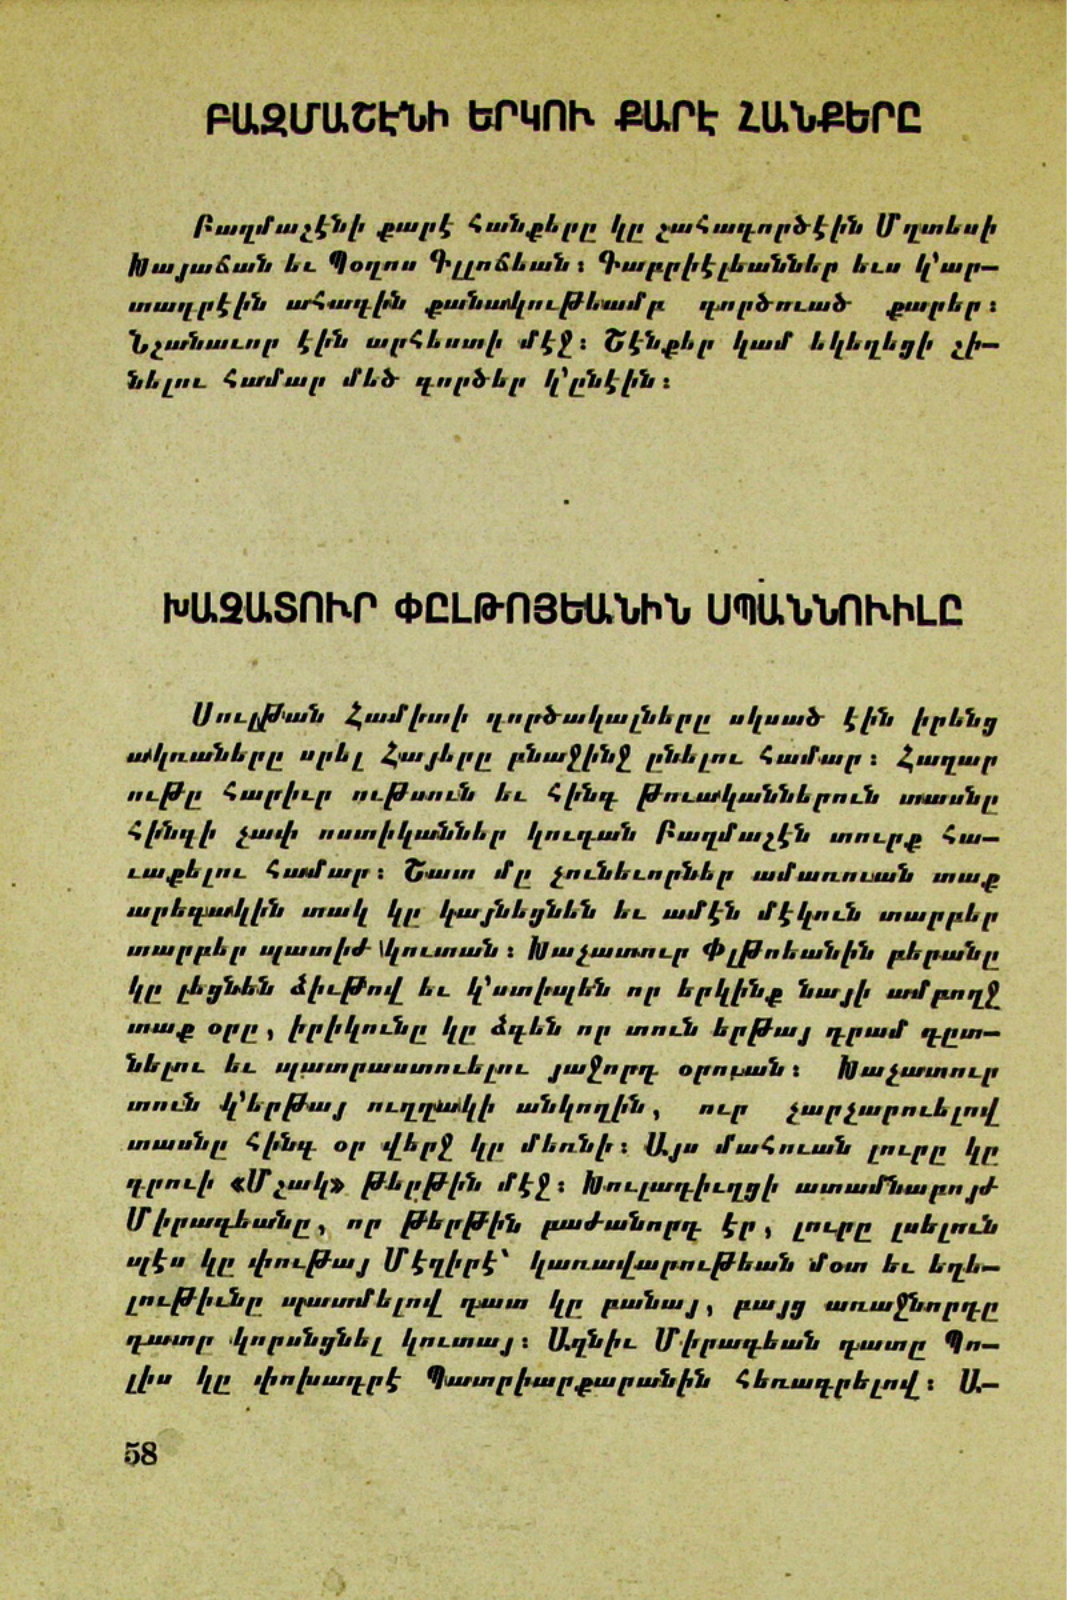 ԲԱԶՄԱՇԷՆԻ ԵՐԿՈՒ ՔԱՐԷ ՀԱՆՔԵՐԸ
Բազմաշէնի քարէ հանքերը կը շահագործէին Մղտեսի
Խայաճան եւ Պօղոս Գլլոճեան։ Գաբրիէլեաններ եւս կ՚ար–
տադրէին ահագին քանակութեամբ գործուած քարեր։
Նշանաւոր էին արհեստի մէջ։ Շէնքեր կամ եկեղեցի շի–
նելու համար մեծ գործեր կ՚ընէին։
ԽԱՉԱՏՈՒՐ ՓԸԼԹՈՅԵԱՆԻՆ ՍՊԱՆՆՈՒԻԼԸ
Սուլթան Համիտի գործակալները սկսած էին իրենց
ակռաները սրել Հայերը բնաջինջ ընելու համար։ Հազար
ութը հարիւր ութսուն եւ հինգ թուականներուն տասնը
հինգի չափ ոստիկաններ կուգան Բազմաշէն տուրք հա–
ւաքելու համար։ Շատ մը չունեւորներ ամառուան տաք
արեգակին տակ կը կայնեցնեն եւ ամէն մէկուն տարբեր
տարբեր պատիժ կուտան։ Խաչատուր Փլթոեանին բերանը
կը լեցնեն ձիւթով եւ կ՚ստիպեն որ երկինք նայի ամբողջ
տաք օրը, իրիկունը կը ձգեն որ տուն երթայ դրամ գըտ–
նելու եւ պատրաստուելու յաջորդ օրուան։ Խաչատուր
տուն կ՚երթայ ուղղակի անկողին, ուր չարչարուելով
տասնը հինգ օր վերջ կը մեռնի։ Այս մահուան լուրը կը
գրուի «Մշակ» թերթին մէջ։ Խուլագիւղցի ատամնաբոյժ
Միրագեանը, որ թերթին բաժանորդ էր, լուրը լսելուն
պէս կը փութայ Մէզիրէ՝ կառավարութեան մօտ եւ եղե–
լութիւնը պատմելով դատ կը բանայ, բայց առաջնորդը
դատը կորսնցնել կուտայ։ Ազնիւ Միրագեան դատը Պո–
լիս կը փոխադրէ Պատրիարքարանին հեռագրելով։ Ա–
58